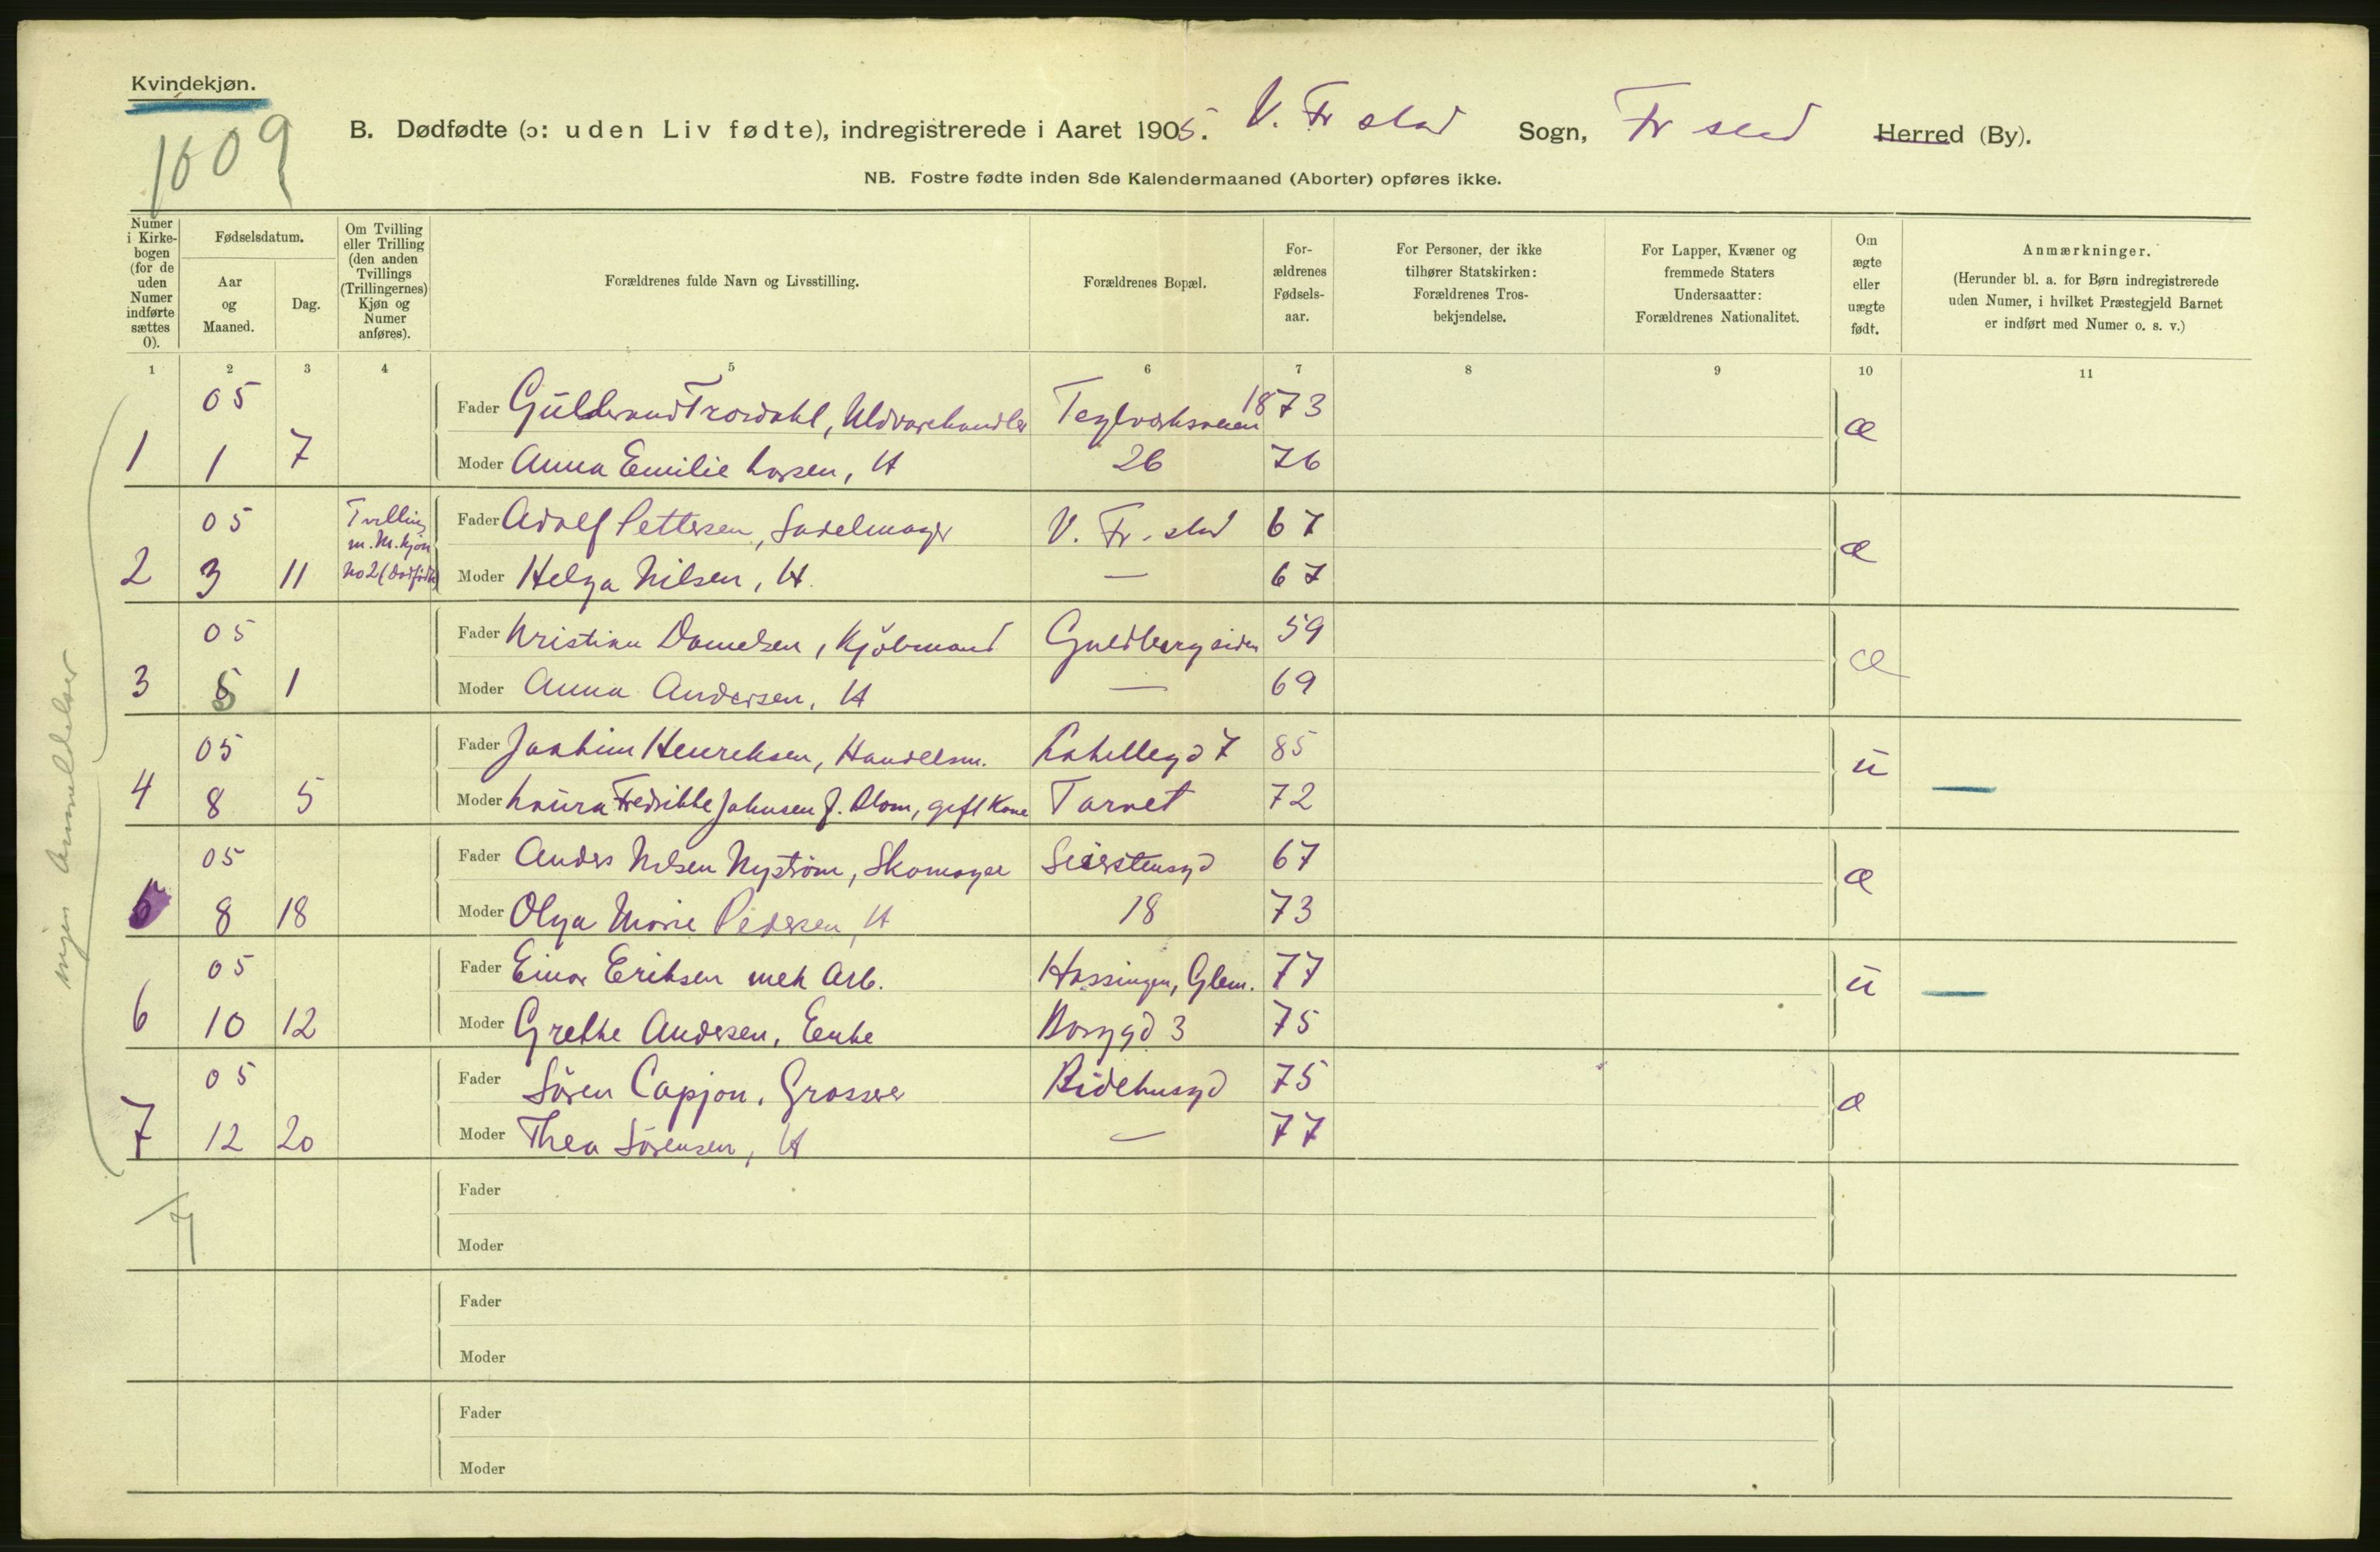 Kvindekjøn.
1009
B. Dødfødte (ɔ: uden Liv fødte), indregistrerede i Aaret 1905. V. Fr stad Sogn, Fr stad Herred (By).
NB. Fostre fødte inden 8de Kalendermaaned (Aborter) opføres ikke.
Numer i Kirkebogen (for de uden Numer indførte sættes 0).
Fødselsdatum.
Aar og Maaned.
Dag.
Om Tvilling eller Trilling (den anden Tvillings (Trillingernes) Kjøn og Numer anføres).
Forældrenes fulde Navn og Livsstilling.
Forældrenes Bopæl.
Forældrenes Fødselsaar.
For Personer, der ikke tilhører Statskirken: Forældrenes Trosbekjendelse.
For Lapper, Kvæner og fremmede Staters Undersaatter: Forældrenes Nationalitet.
Om ægte eller uægte født.
Anmærkninger.
(Herunder bl. a. for Børn indregistrerede uden Numer, i hvilket Præstegjeld Barnet er indført med Numer o. s. v.)
1 2 3 4 5 6 7 8 9 10 11
05 Fader Guldbrand Trosdahl, Uldvarehandler Teglværksveien 1873
1 1 7 Moder Anna Emilie Larsen, H 26 76 æ
05 Tvilling m. M.kjøn Fader Adolf Pettersen, Sadelmager V. Fr. stad 67
2 3 11 No 2 (dødfødt) Moder Helga Nilsen, H. — 67 æ
05 Fader Kristian Danielsen, Kjøbmand Guldbergsiden 59
3 5 1 Moder Anna Andersen, H — 69 æ
05 Fader Joakim Henriksen, Handelsm. Kapellegd 7 85
4 8 5 Moder Laura Fredrikke Johnsen f. Blom, gift Kone Torvet 72 u —
05 Fader Anders Nilsen Nystrøm, Skomager Seierstensgd 67
5 8 18 Moder Olga Marie Pedersen, H 18 73 æ
05 Fader Einar Eriksen mek Arb. Hassingen, Glem. 77
6 10 12 Moder Grethe Andersen, Enke Borggd 3 75 u —
05 Fader Søren Capjon, Grosserer Ridehusgd 75
7 12 20 Moder Thea Sørensen, H — 77 æ
7
Fader
Moder
Fader
Moder
Fader
Moder
ingen Anmeldelser